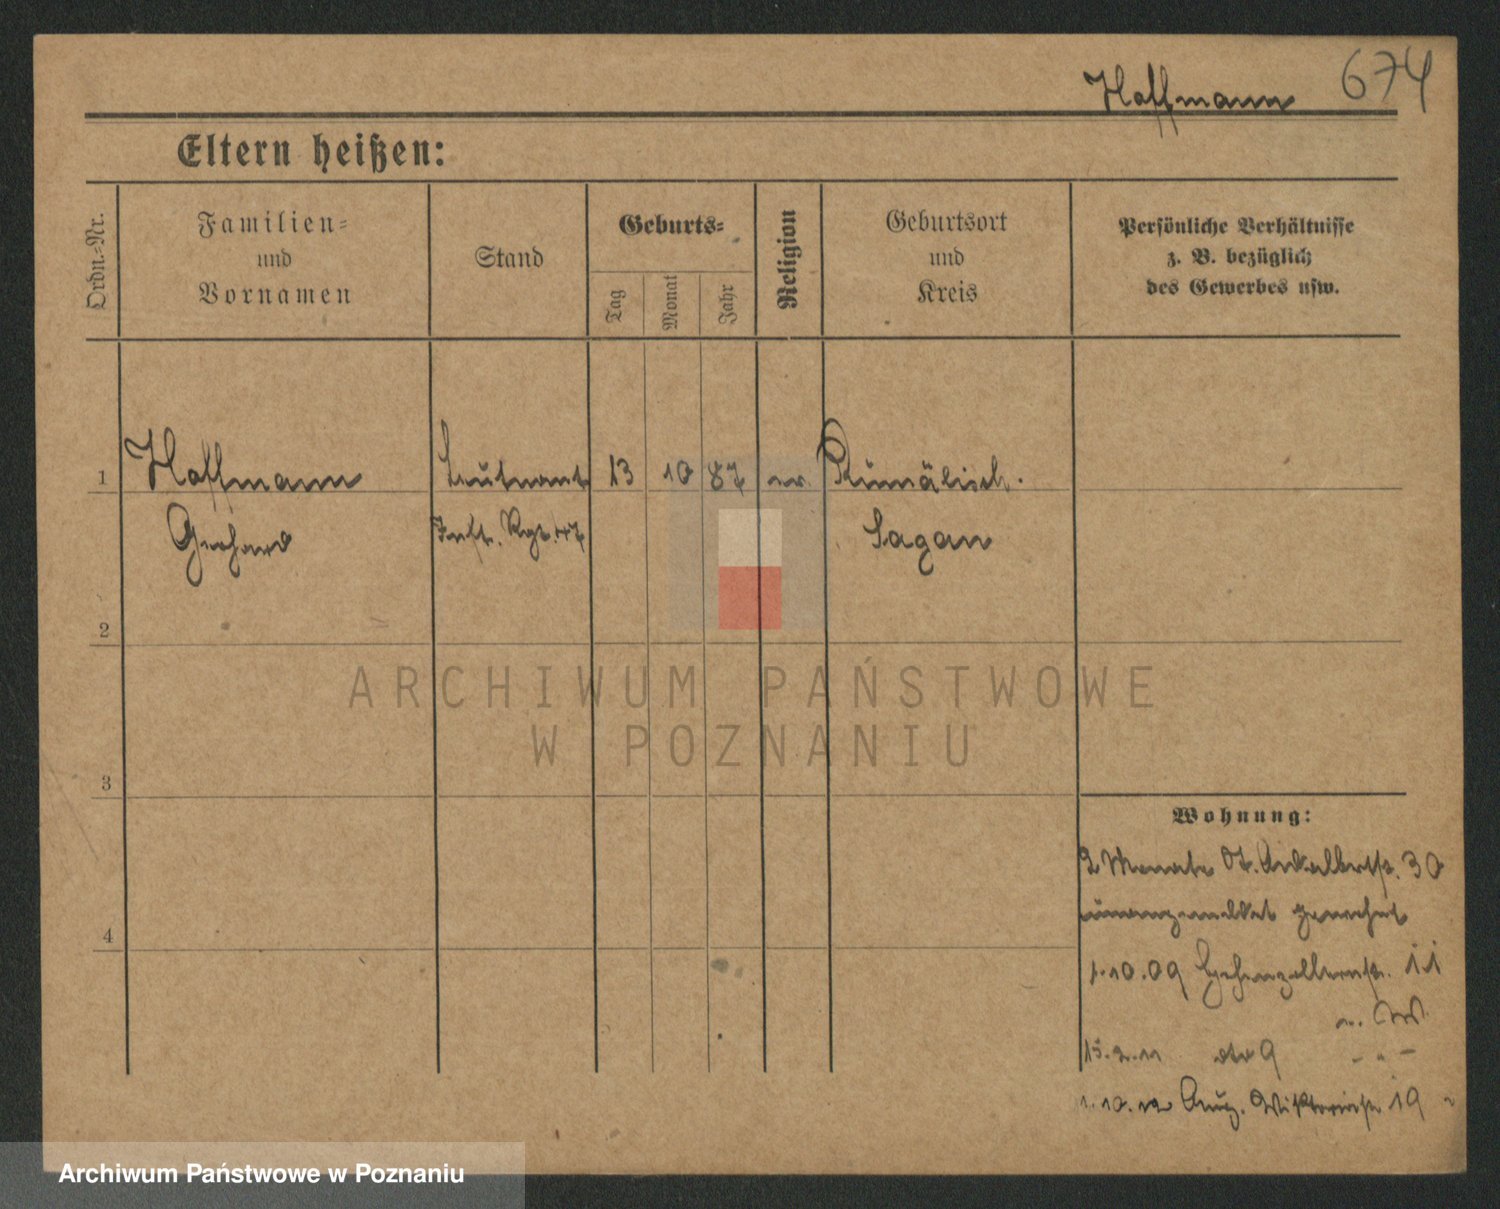 Hoffmann 674
Eltern heißen:
Ordn.-Nr.
Familien-
und
Vornamen
Stand
Geburts-
Tag
Monat
Jahr
Religion
Geburtsort
und
Kreis
Persönliche Verhältnisse
z. B. bezüglich
des Gewerbes usw.
1 Hoffmann Leutnant 13 10 87 ev.
Gerhard Inft. Rgt. 47 Sagan
2
ARCHIWUM PAŃSTWOWE
W POZNANIU
3
Wohnung:
2 Monate St. Adalbertstr. 30
4
1.10.09 Hohenzollernstr. 11
15.2.11 dto 9
1.10.12 Aug. Viktoriastr 19
Archiwum Państwowe w Poznaniu